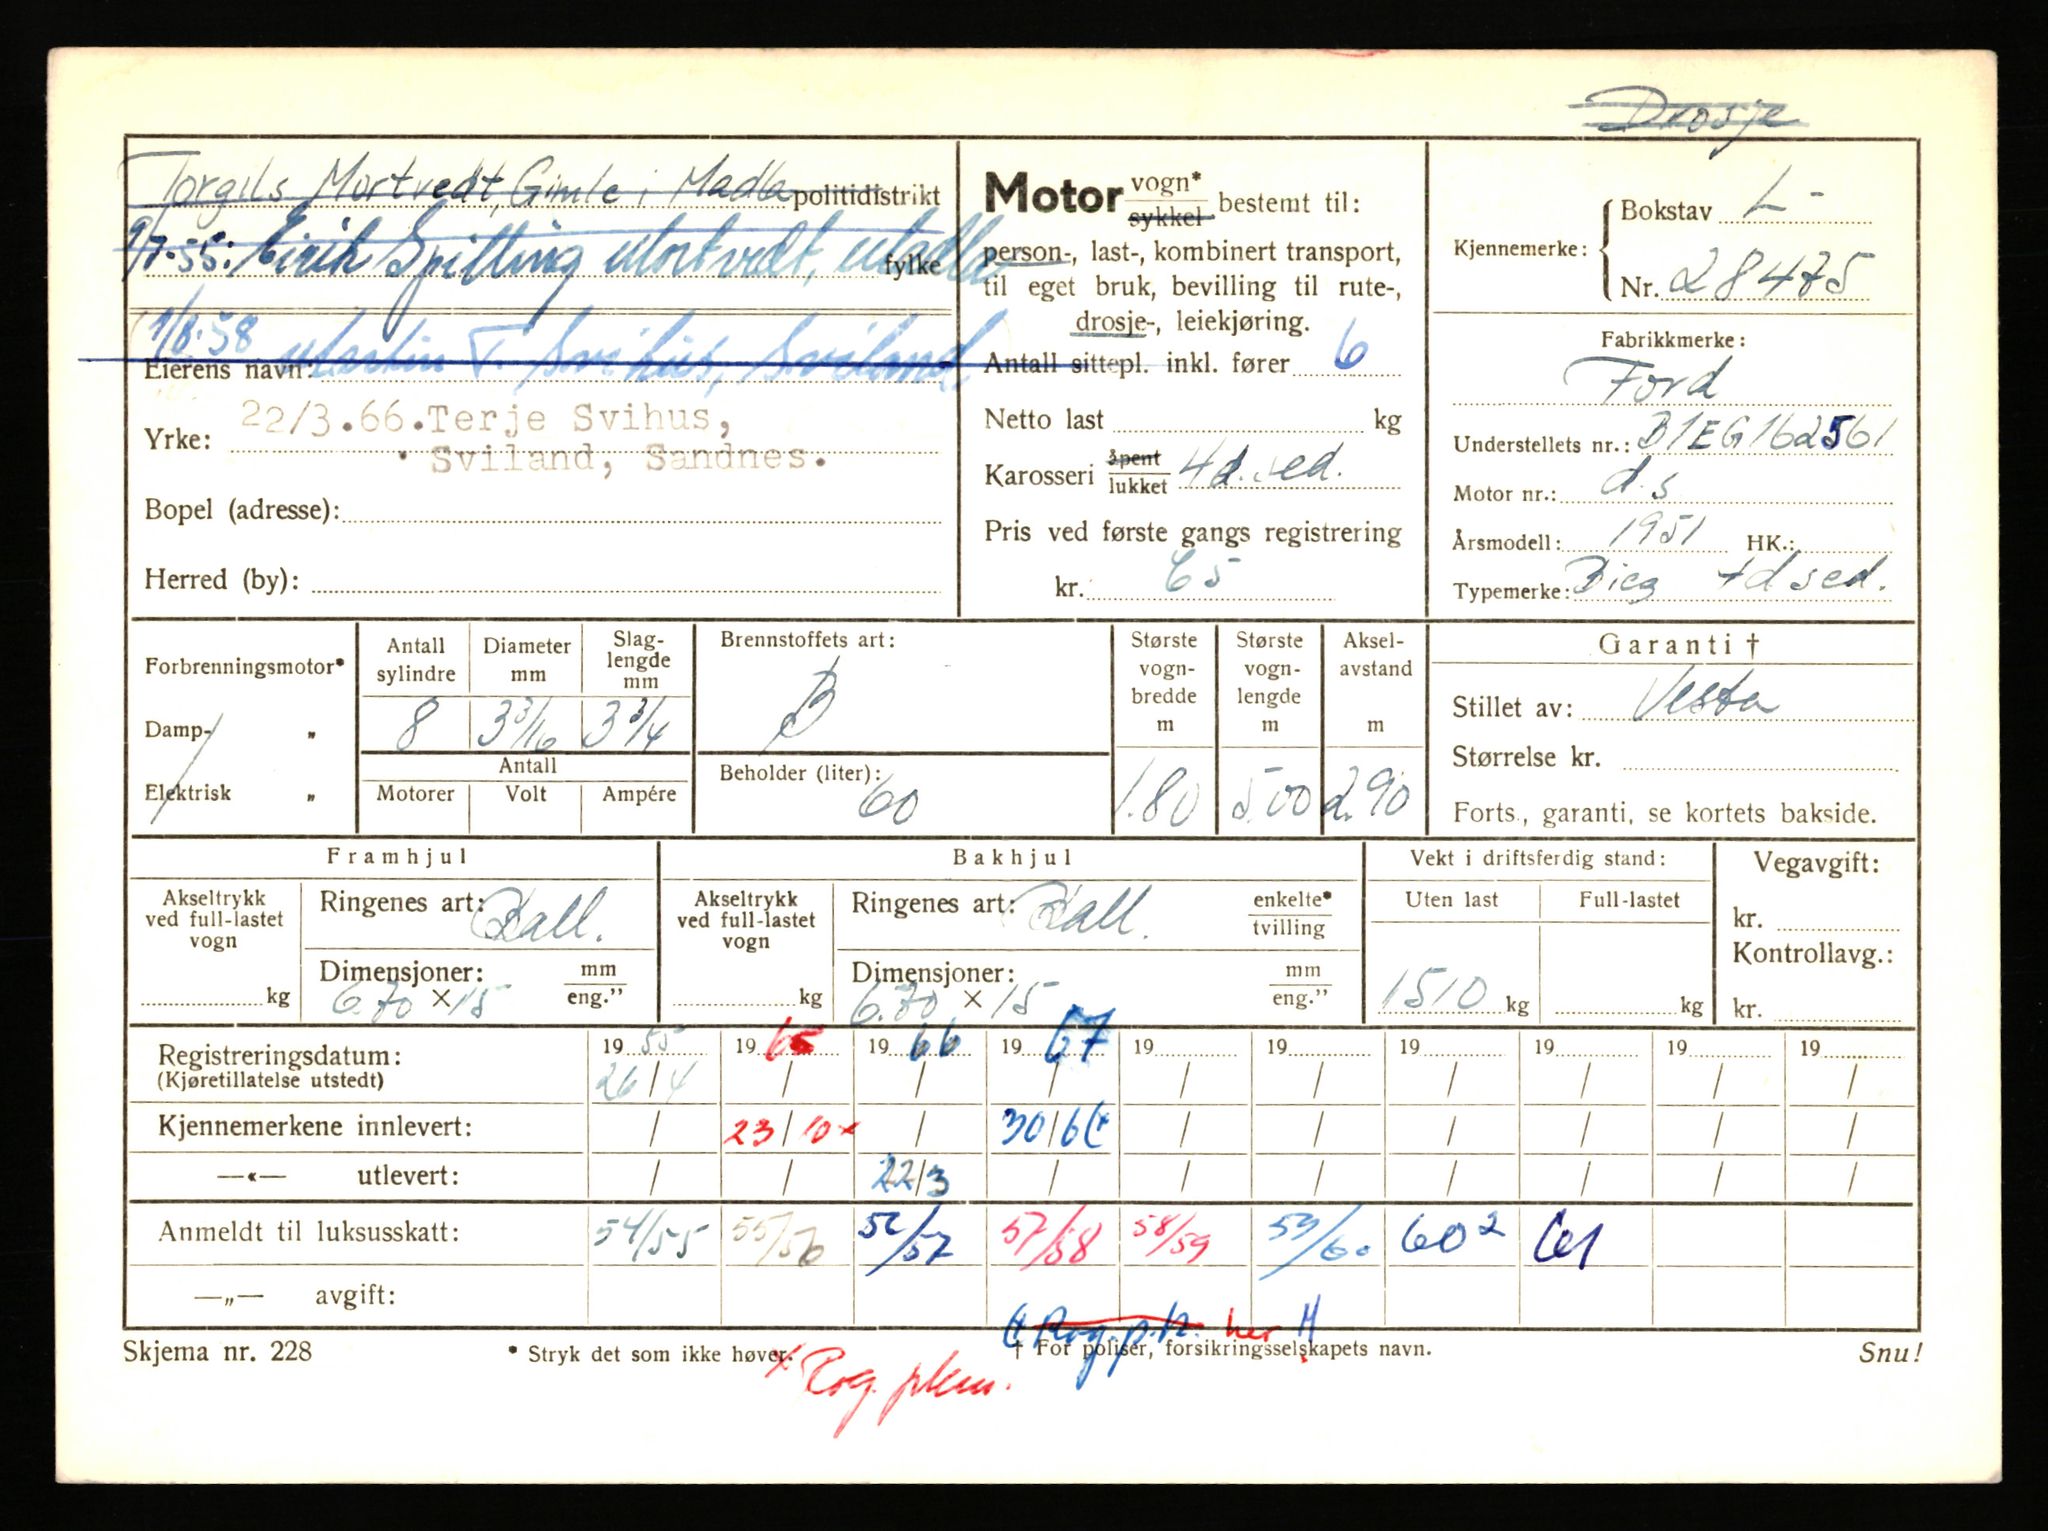 Drosje
Torgils Mortvedt, Gimle i Madla politidistrikt
9/7-55: Eirik Spilling Mortvedt, Madla fylke
1/8.58 Martin T. Svihus, Sviland,
Eierens navn:
22/3.66. Terje Svihus,
Yrke:
Sviland, Sandnes.
Bopel (adresse):
Herred (by):
Motor vogn* sykkel bestemt til:
person-, last-, kombinert transport,
til eget bruk, bevilling til rute-,
drosje-, leiekjøring.
Antall sittepl. inkl. fører 6
Netto last kg
Karosseri åpent lukket 4d. sed.
Pris ved første gangs registrering
kr. 65
Kjennemerke: Bokstav L-
Nr. 28475
Fabrikkmerke:
Ford
Understellets nr.: B1EG162561
Motor nr.: d.s
Årsmodell: 1951 HK.:
Typemerke: 4d sed.
Forbrenningsmotor*
Damp- "
Elektrisk "
Antall sylindre
Diameter mm
Slag-lengde mm
8 3 3/16 3 3/4
Antall
Motorer Volt Ampére
Brennstoffets art:
B
Beholder (liter):
60
Største vogn-bredde m
1.80
Største vogn-lengde m
5.00
Aksel-avstand m
2.90
Garanti †
Stillet av: Vesta
Størrelse kr.
Forts., garanti, se kortets bakside.
Framhjul
Akseltrykk ved full-lastet vogn
kg
Ringenes art: Ball.
Dimensjoner: mm eng."
6.70 × 15
Bakhjul
Akseltrykk ved full-lastet vogn
kg
Ringenes art: Ball. enkelte* tvilling
Dimensjoner: mm eng."
6.70 × 15
Vekt i driftsferdig stand:
Uten last Full-lastet
1510 kg kg
Vegavgift:
kr.
Kontrollavg.:
kr.
Registreringsdatum: 1955 1965 1966 1967 19 19 19 19 19 19
(Kjøretillatelse utstedt) 26/4 / / / / / / / / /
Kjennemerkene innlevert: / 23/10 x / 30/6 (+ / / / / / /
—«— utlevert: / / 22/3 / / / / / / /
Anmeldt til luksusskatt: 54/55 55/56 56/57 57/58 58/59 59/60 60² 61
—„— avgift:
(+ Rog. p.k. her
Skjema nr. 228
* Stryk det som ikke høver.
† For poliser, forsikringsselskapets navn.
Snu!
x Rog. pkm.